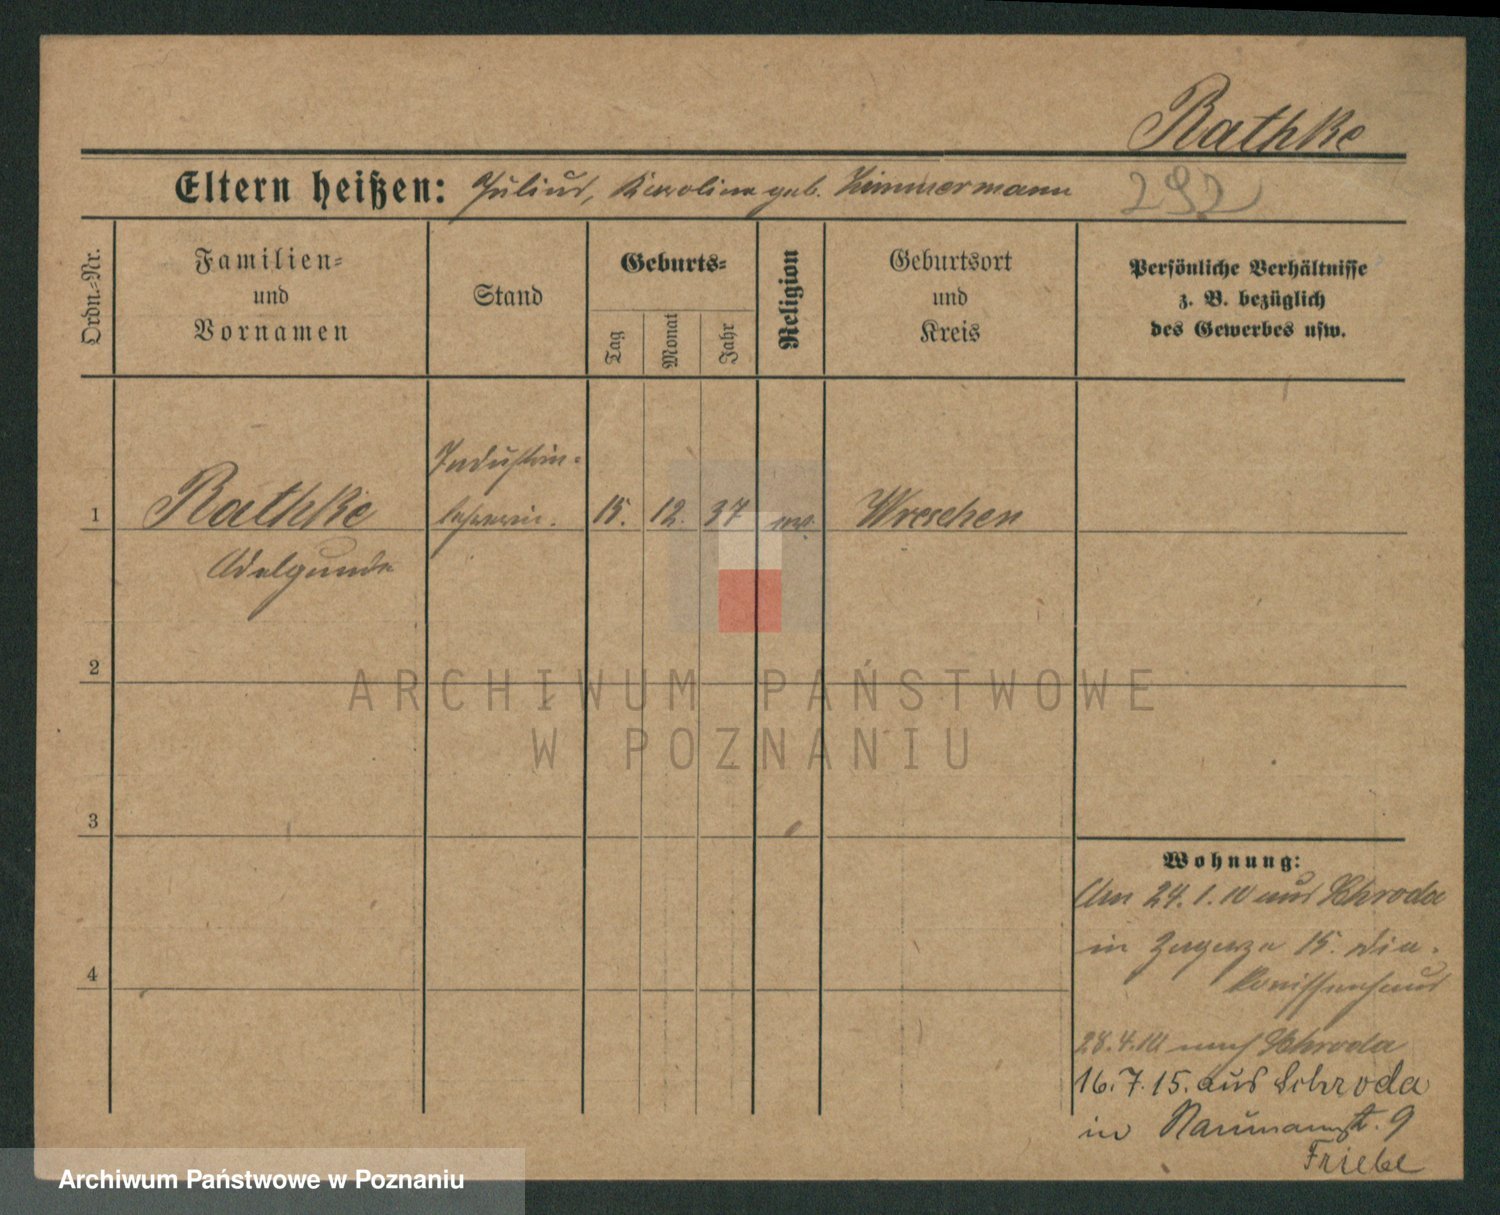 Rathke
Eltern heißen: Julius, Karoline geb. Zimmermann 292
Ordn.=Nr.
Familien=
und
Vornamen
Stand
Geburts=
Tag
Monat
Jahr
Religion
Geburtsort
und
Kreis
Persönliche Verhältnisse
z. B. bezüglich
des Gewerbes usw.
Industrie-
1 Rathke lehrerin. 15. 12. 37 ev. Wreschen
Adelgunde
2
ARCHIWUM PAŃSTWOWE
W POZNANIU
3
Wohnung:
Am 24.1.10 aus Schroda
4
in 15. Dia-
konissenhaus
28.4.10 nach Schroda
16.7.15. aus Schroda
in Naumannst. 9
Friebe
Archiwum Państwowe w Poznaniu